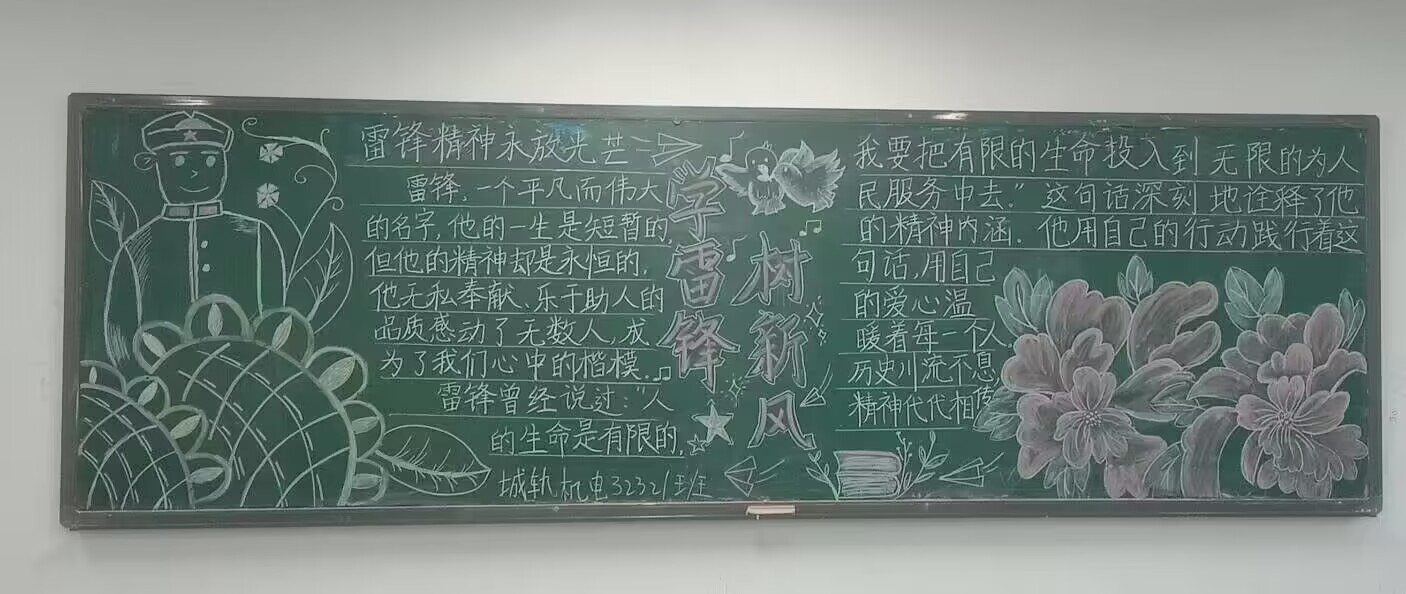 雷锋精神永放光芒
雷锋,一个平凡而伟大
的名字,他的一生是短暂的,
但他的精神却是永恒的,
他无私奉献、乐于助人的
品质感动了无数人,成
为了我们心中的楷模.
雷锋曾经说过:“人
的生命是有限的,
城轨机电32321班
学雷锋
树新风
我要把有限的生命投入到无限的为人
民服务中去.”这句话深刻地诠释了他
的精神内涵.他用自己的行动践行着这
句话,用自己
的爱心温
暖着每一个人
历史川流不息
精神代代相传